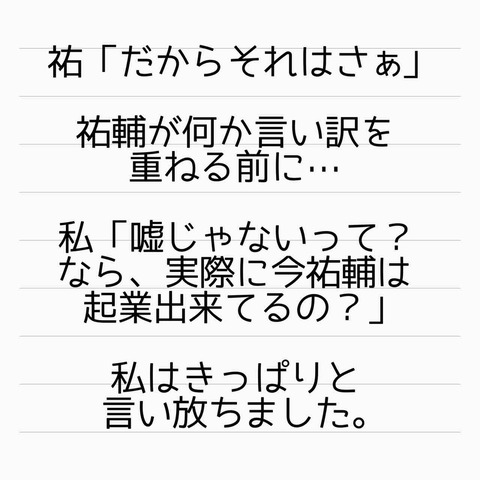 祐「だからそれはさぁ」
祐輔が何か言い訳を
重ねる前に…
私「嘘じゃないって？
なら、実際に今祐輔は
起業出来てるの？」
私はきっぱりと
言い放ちました。